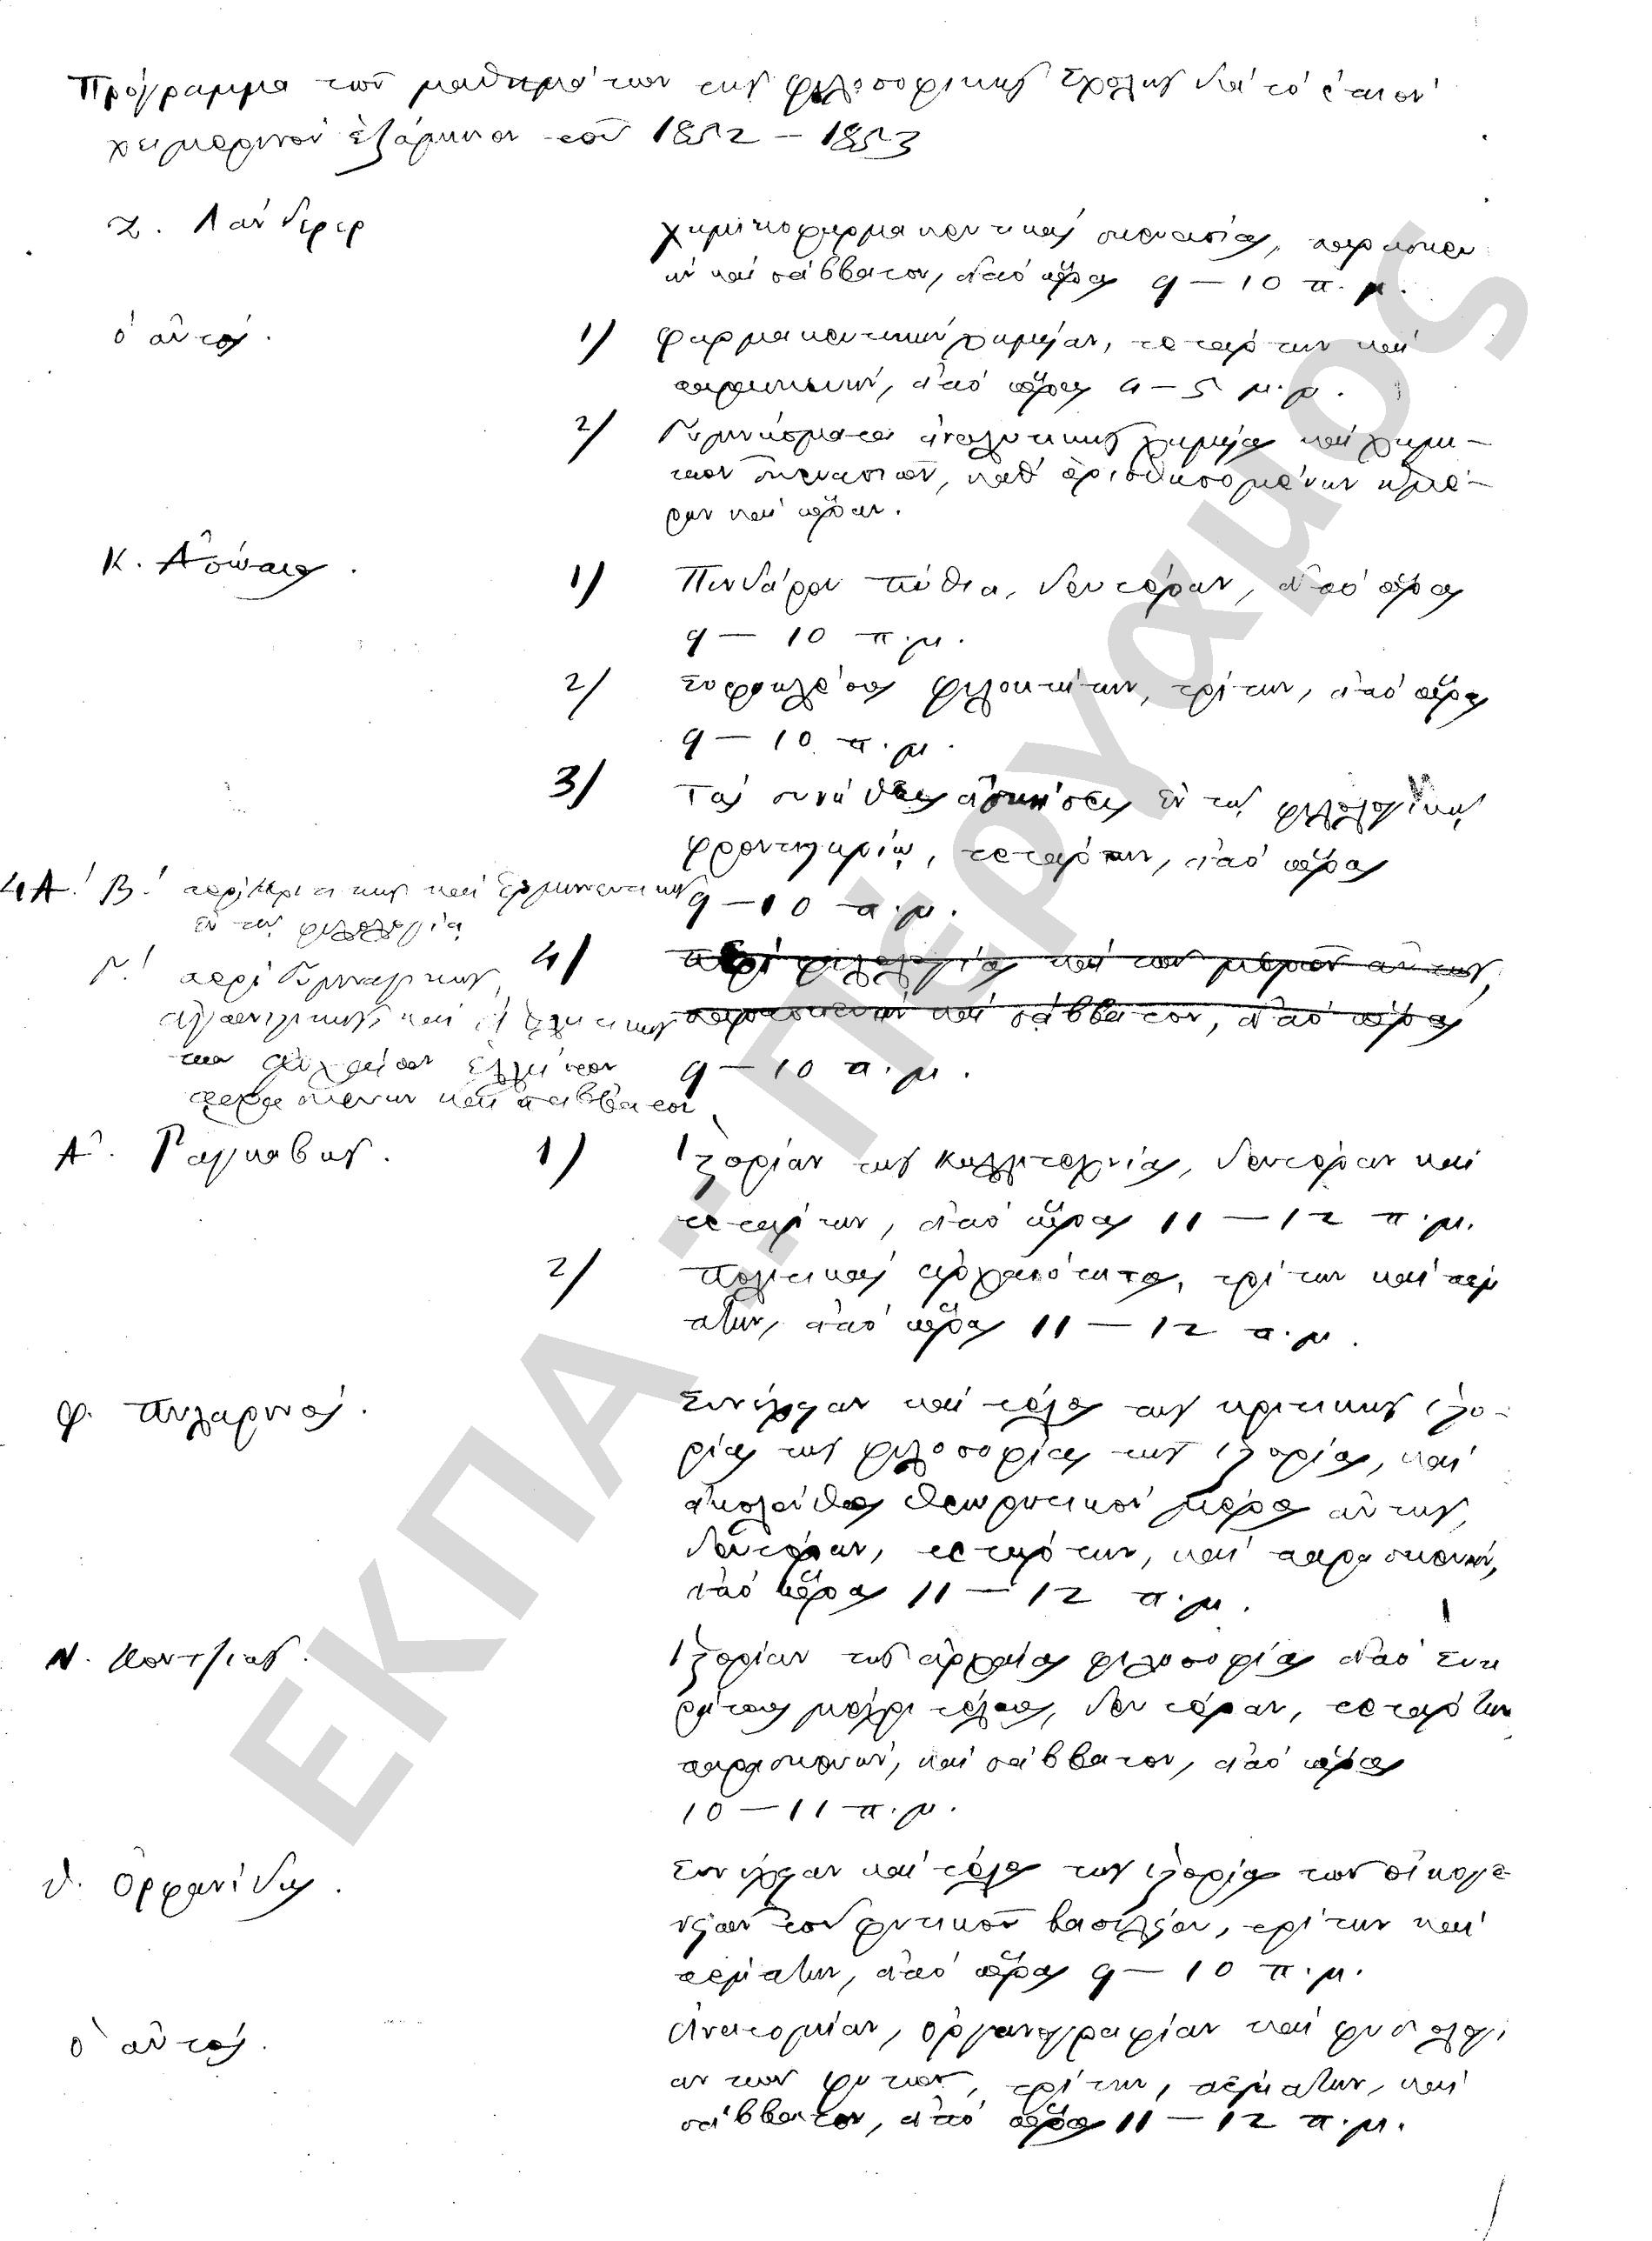 Πρόγραμμα τῶν μαθημάτων της φιλοσοφικης σχολης διὰ τὸ
χειμερινον ἑξάμηνον τοῦ 1852 – 1853
Ξ. Λάνδερερ
χημικοφαρμακευτικὰς σκευασίας, παρασκευ
ὴν καὶ σάββατον, ἀπὸ ὥρας 9 – 10 π. μ.
ὁ αὐτός.
1) φαρμακευτικὴν χημείαν, τετάρτην καὶ
παρασκευὴν, ἀπὸ ὥρας 4 – 5 μ. μ.
2) Γυμνάσματα ἀναλυτικης χημείας καὶ χημι–
κῶν σκευασιῶν, καθ' ὁρισθησομένην ἡμέ–
ραν καὶ ὥραν.
Κ. Ἀσώπιος.
1) Πινδάρου Πύθια, δευτέραν, ἀπὸ ὥρας
9 – 10 π. μ.
2) Σοφοκλέους Φιλοκτήτην, τρίτην, ἀπὸ ὥρας
9 – 10 π. μ.
3) Τὰς συνήθεις ἀσκήσεις ἐν τῳ φιλολογικῳ
φροντιστηρίῳ, τετάρτην, ἀπὸ ὥρας
9 – 10 π. μ.
4 Α! Β! περὶ κριτικης καὶ ἑρμηνευτικης
ἐν τῃ φιλολογίᾳ
Γ! περὶ Γυμναστικης
καὶ
των ἀρχαίων ἑλλήνων
παρασκευην καὶ σάββατον
4) περὶ φιλολογίας καὶ των μερῶν αὐτης,
παρασκευὴν καὶ σάββατον, ἀπὸ ὥρας
9 – 10 π. μ.
Α. Ραγκαβης.
1) Ἱστορίαν της καλλιτεχνίας, δευτέραν καὶ
τετάρτην, ἀπὸ ὥρας 11 – 12 π. μ.
2) Πολιτικὰς ἀρχαιότητας, τρίτην καὶ πέμ
πτην, ἀπὸ ὥρας 11 – 12 π. μ.
Φ. Πυλαρινός.
Συνέχειαν καὶ τέλος της κριτικης ἱστο–
ρίας της φιλοσοφίας της ἱστορίας, καὶ
ἀκολούθως θεωρητικὸν μέρος αὐτης,
δευτέραν, τετάρτην, καὶ παρασκευὴν,
ἀπὸ ὥρας 11 – 12 π. μ.
Ν. Κοντζιας.
Ἱστορίαν της ἀρχαίας φιλοσοφίας ἀπὸ Σωκ
ράτους μέχρι τέλους, δευτέραν, τετάρτην
παρασκευὴν, καὶ σάββατον, ἀπὸ ὥρας
10 – 11 π. μ.
Θ. Ὀρφανίδης.
Συνέχειαν καὶ τέλος της ἱστορίας των οἰκογε–
νειῶν τοῦ φυτικοῦ βασιλείου, τρίτην καὶ
πέμπτην, ἀπὸ ὥρας 9 – 10 π. μ.
ὁ αὐτός.
Ἀνατομίαν, ὀργανογραφίαν καὶ φυσιολογί
αν των φυτων, τρίτην, πέμπτην, καὶ
σάββατον, ἀπὸ ὥρας 11 – 12 π. μ.
ΕΚΠΑ .: Πέργαμος